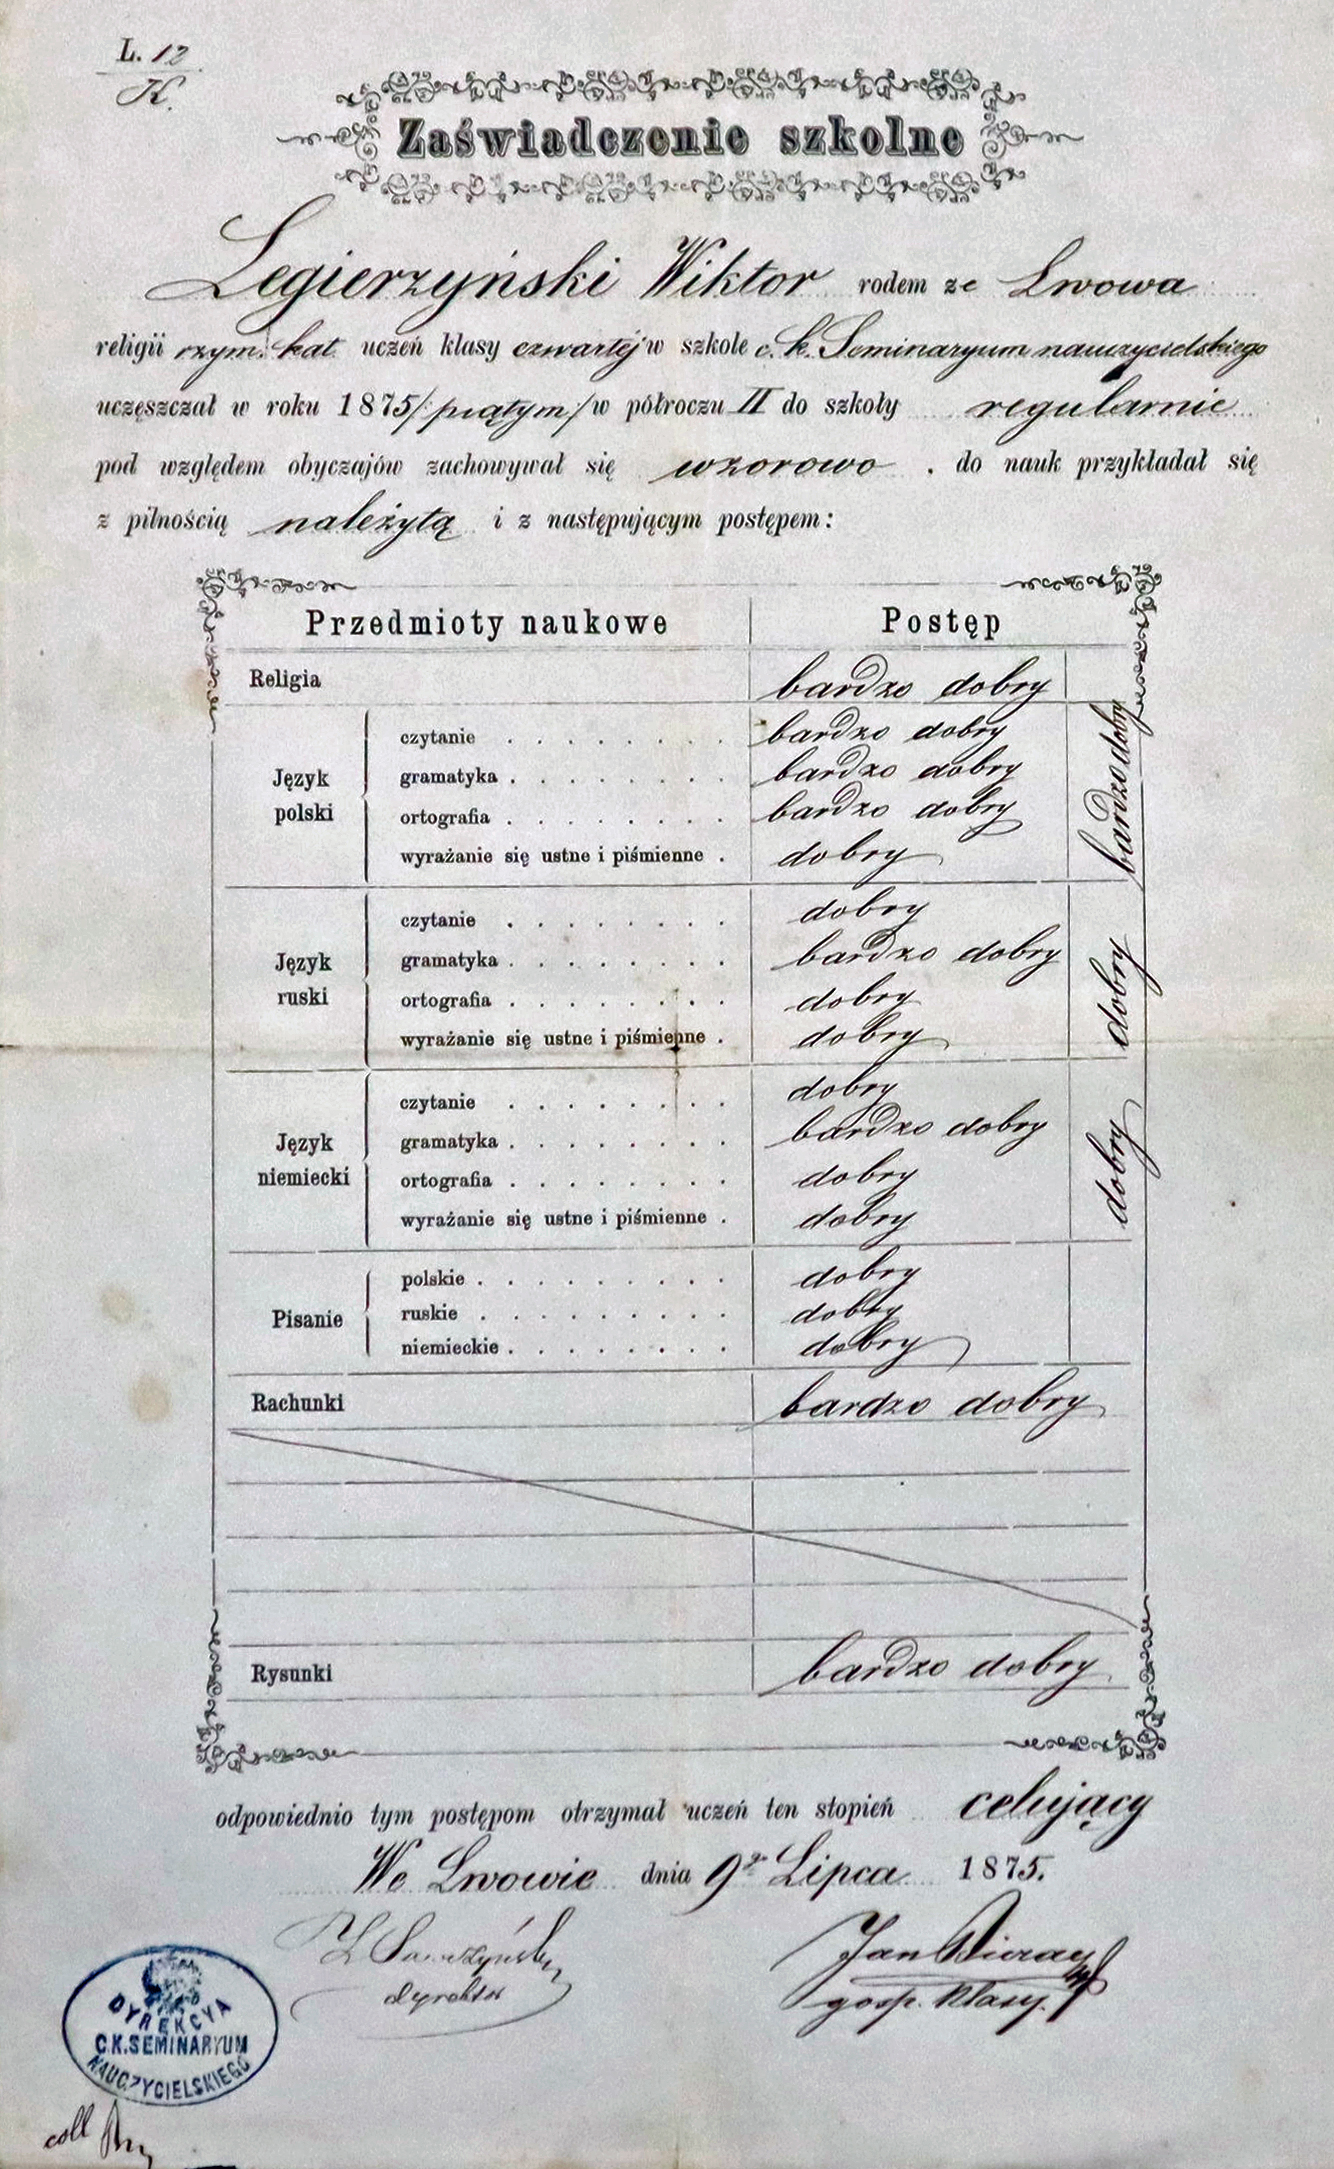 L. 12
K.
Zaświadczenie szkolne
Legierzyński Wiktor rodem ze Lwowa
religii rzym. kat. uczeń klasy czwartej w szkole c. k. Seminaryum nauczycielskiego
uczęszczał w roku 1875/:piątym:/ w półroczu II do szkoły regularnie
pod względem obyczajów zachowywał się wzorowo . do nauk przykładał się
z pilnością należytą i z następującym postępem:
Przedmioty naukowe Postęp
Religia bardzo dobry
Język polski bardzo dobry
czytanie . . . . . . . . bardzo dobry
gramatyka . . . . . . . . bardzo dobry
ortografia . . . . . . . . bardzo dobry
wyrażanie się ustne i piśmienne . dobry
Język ruski dobry
czytanie . . . . . . . . dobry
gramatyka . . . . . . . . bardzo dobry
ortografia . . . . . . . . dobry
wyrażanie się ustne i piśmienne . dobry
Język niemiecki dobry
czytanie . . . . . . . . dobry
gramatyka . . . . . . . . bardzo dobry
ortografia . . . . . . . . dobry
wyrażanie się ustne i piśmienne . dobry
Pisanie
polskie . . . . . . . . . dobry
ruskie . . . . . . . . . dobry
niemieckie . . . . . . . . dobry
Rachunki bardzo dobry
Rysunki bardzo dobry
odpowiednio tym postępom otrzymał uczeń ten stopień celujący
We Lwowie dnia 9go Lipca 1875.
Sawczyński
dyrektor
Jan
gosp. klasy.
DYREKCYA
C.K. SEMINARYUM
NAUCZYCIELSKIEGO
coll